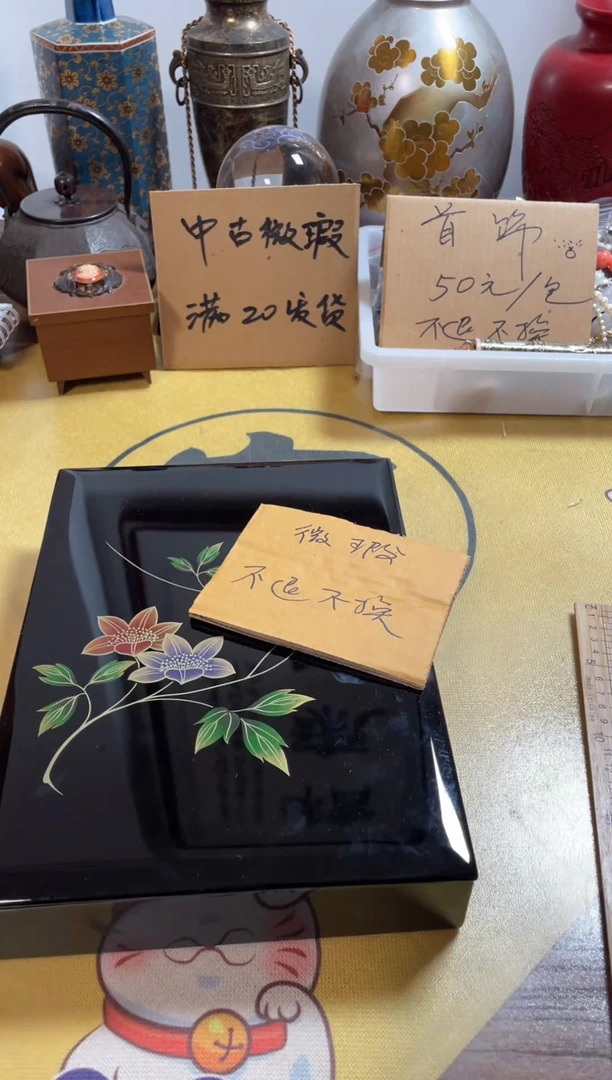 中古微瑕
满20发货
首饰
50元/包
不退不换
微瑕
不退不换